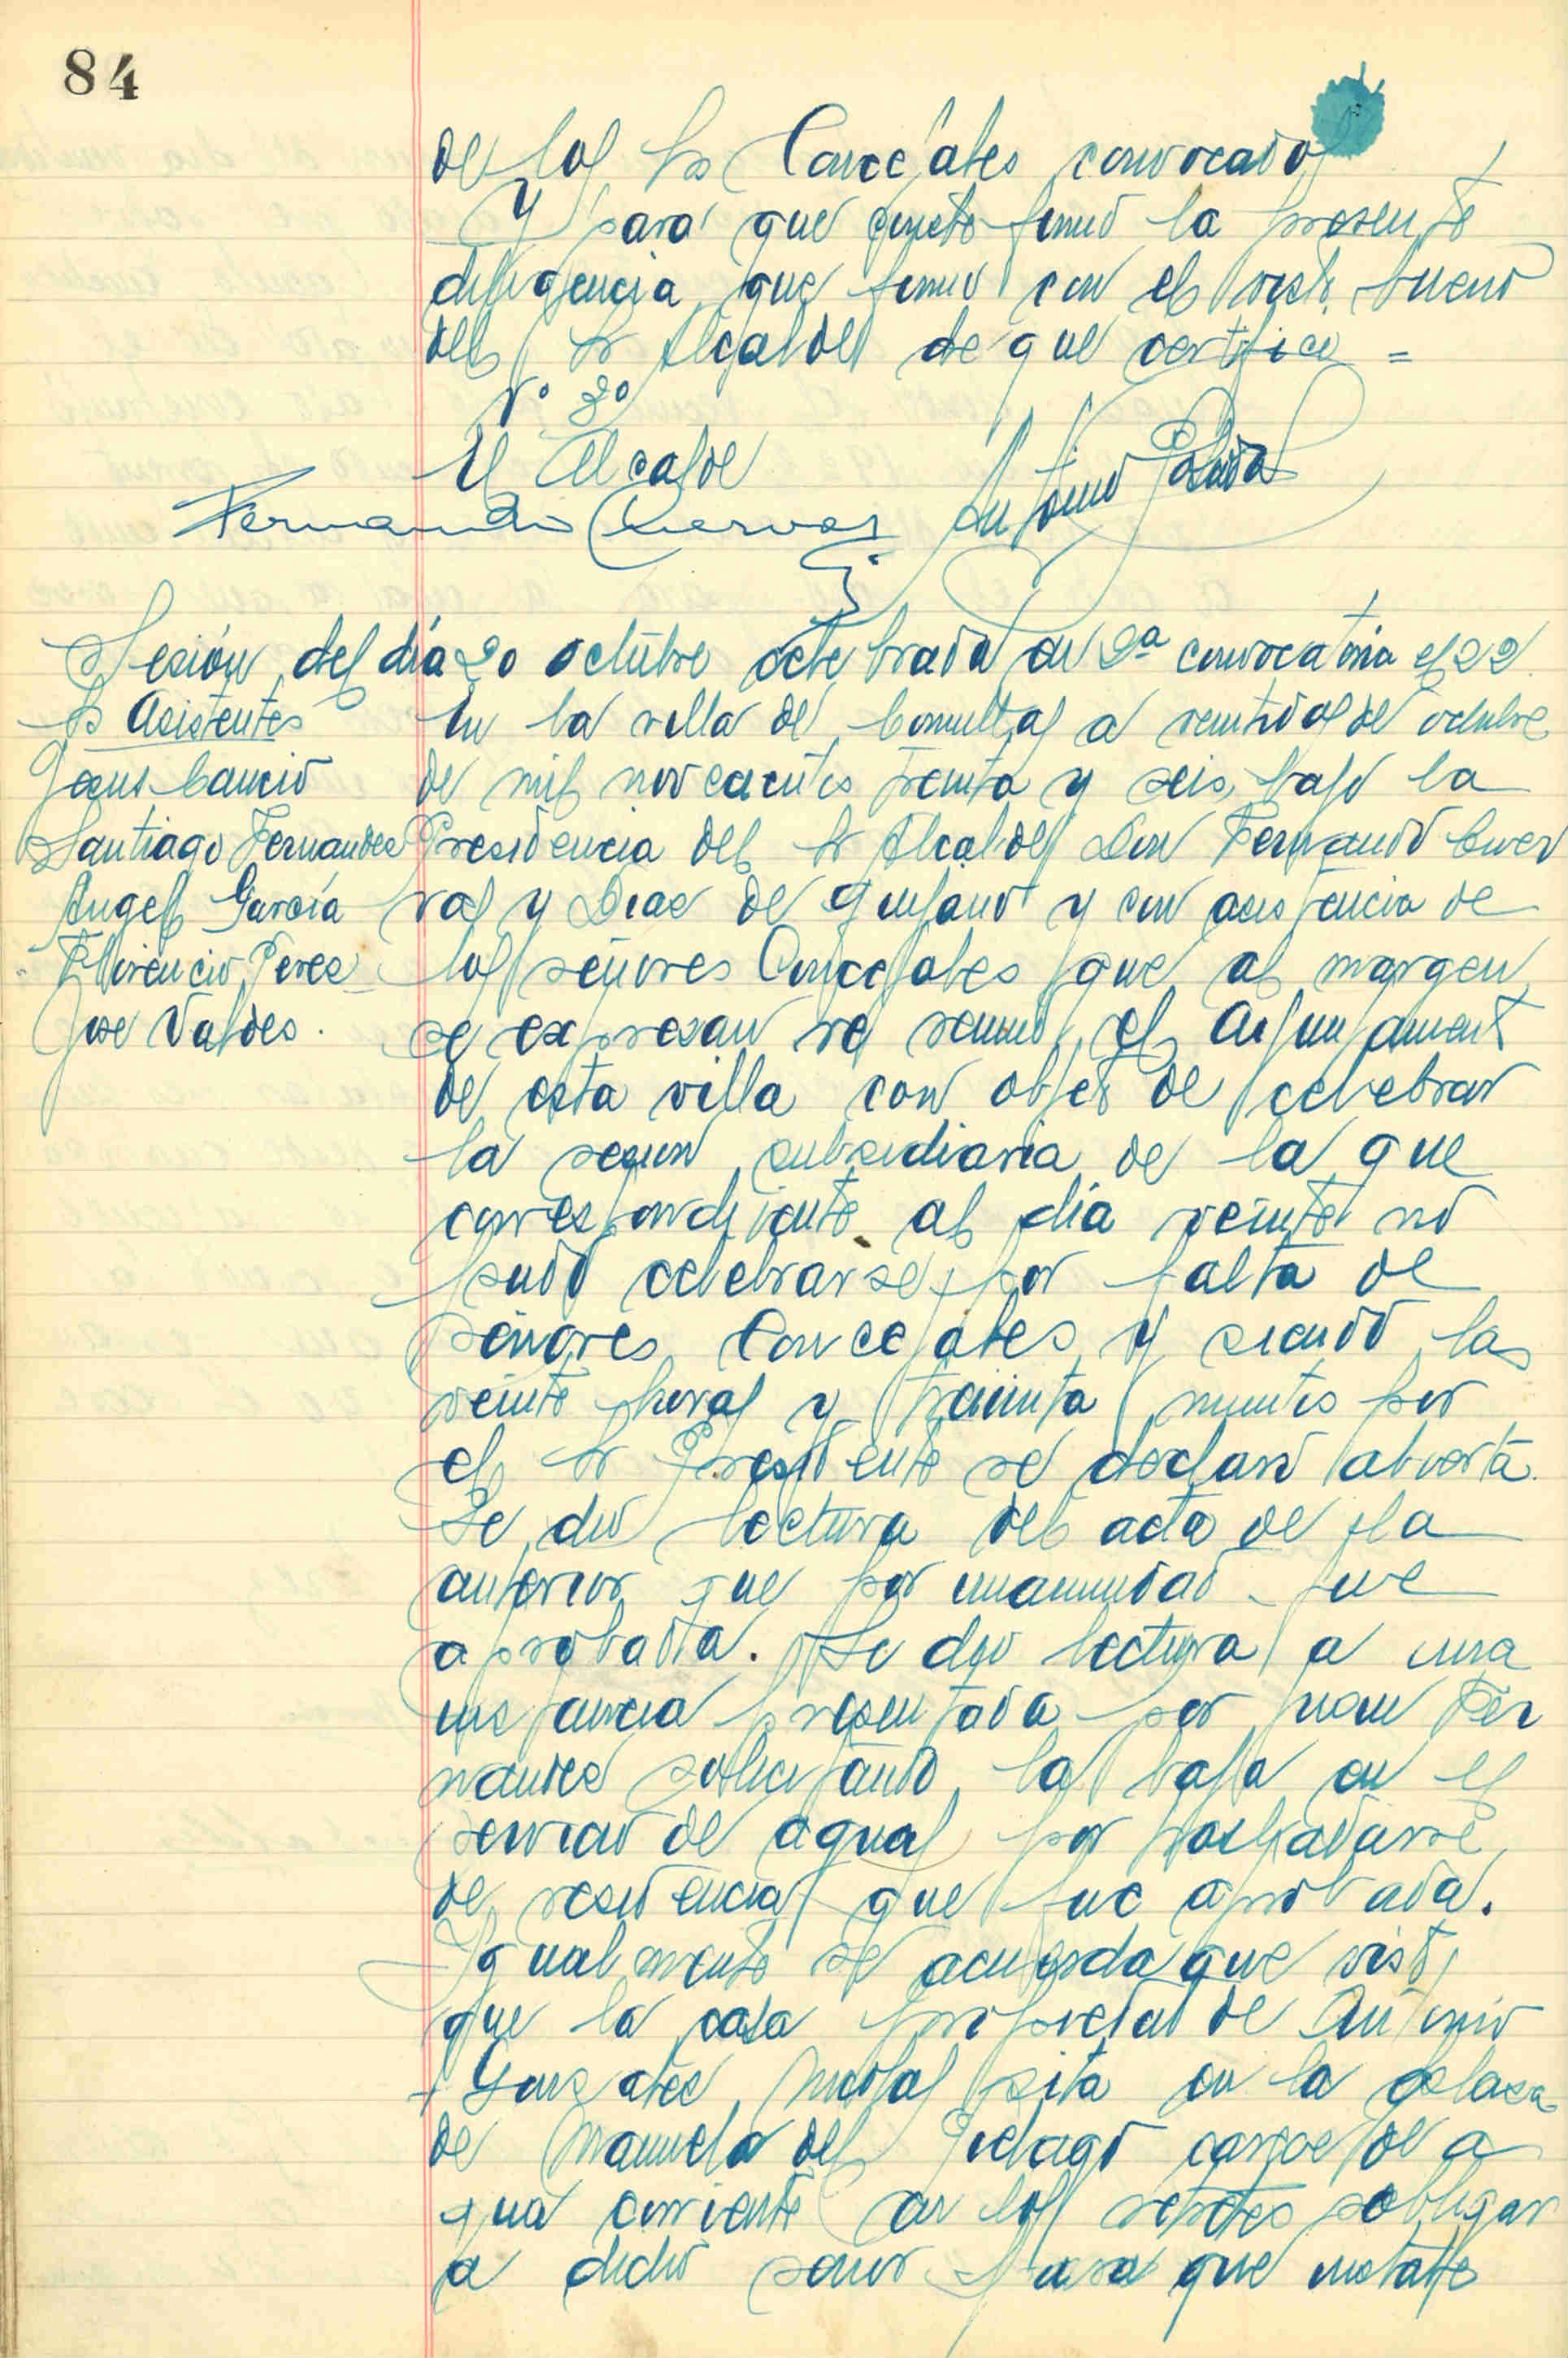 84
de los Sres Concejales convocados
Y para que conste firmo la presente
diligencia que firmo con el visto bueno
del Sr Alcalde de que certifico =
Vº Bº
El Alcalde
Fernando Cuervas Antonio
Sesión del día 20 octubre celebrada en 2ª convocatoria el 22
Srs Asistentes
Jesus Cancio
Santiago Fernandez
Angel García
Florencio Perez
Jose Valdes.
En la villa de Comillas a veintidos de octubre
de mil novecientos treinta y seis, bajo la
Presidencia del Sr Alcalde Don Fernando Cuer
vas y Diaz de Quijano y con asistencia de
los señores Concejales que al margen
se expresan se reunio el Ayuntamient
de esta villa con objeto de celebrar
la sesion subsidiaria de la que
correspondiente al día veinte no
pudo celebrarse por falta de
señores Concejales y siendo las
veinte horas y treinta minutos por
el Sr Presidente se declaró abierta.
Se dio lectura del acta de la
anterior que por unanimidad fue
aprobada. Se dio lectura a una
instancia presentada por Juan Fer
nandez solicitando la baja en el
servicio de aguas por trasladarse
de residencia que fue aprobada.
Igualmente se acuerda que visto
que la casa propiedad de Antonio
Gonzalez sita en la plaza
de Manuela del Pielago carece de a
gua corriente en los retretes obligar
a dicho señor para que instale